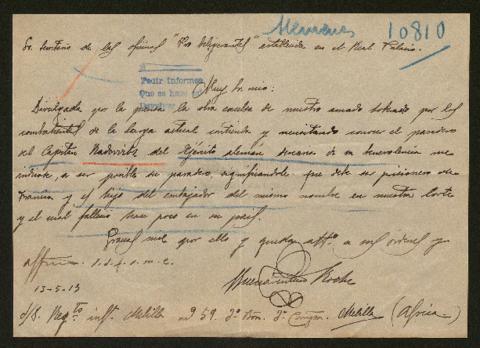 Alemanes 10810
Sr. Secretario de las oficinas "Pro Belligerantes" establecida en el Real Palacio.
Pedir informes
Que se hace
Muy Sr. mio:
Divulgada por la prensa la obra excelsa de nuestro amado soberano por los
combatientes de la larga actual contienda y necesitando conocer el paradero
del Capitán del Ejército alemán de su benevolencia me
indicase, a ser posible su paradero, significándole que debe ser prisionero de
Francia y el hijo del embajador del mismo nombre en nuestra Corte
y el cual falleció hace poco en su país.
Gracias mil por ello y quedan affmo. a sus órdenes
affmo. s.s.q.s.m.e.
Buenaventura
13-5-15
Regto infa. Melilla nº 59. 2º Bon. 3ª Compañ. Melilla (Africa)